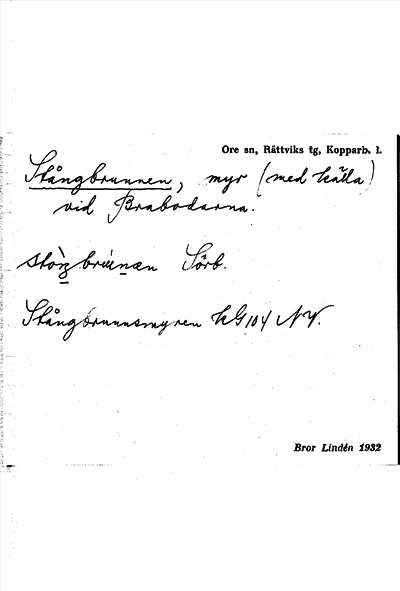 Ore sn, Rättviks tg, Kopparb. l.
Stångbrunnen, myr (med källa)
vid Brabodarna.
Sörb.
Stångbrunnsmyren KG 104 NV.
Bror Lindén 1932